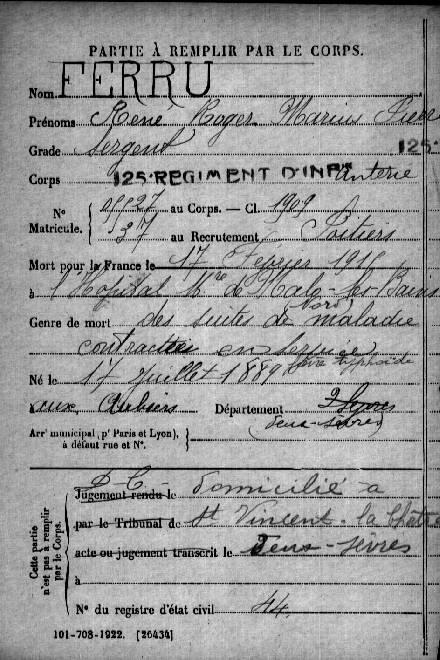 PARTIE À REMPLIR PAR LE CORPS.
Nom FERRU
Prénoms René Roger Marius
Grade Sergent 125.
Corps 125. REGIMENT D'INFanterie
N° Matricule. 05527 au Corps. — Cl. 1909
527 au Recrutement Poitiers
Mort pour la France le 17 Février 1915
à l'Hôpital de Malo-les-Bains
Nord
Genre de mort des suites de maladie
contractée en service
fièvre typhoïde
Né le 17 Juillet 1889
aux Aubiers Département 2 Sèvres
(Deux-Sèvres)
Arrᵗ municipal (pʳ Paris et Lyon), à défaut rue et N°.
Cette partie n'est pas à remplir par le Corps.
D.C.
Jugement rendu le domicilié à
par le Tribunal de St Vincent-la Châtre
acte ou jugement transcrit le Deux-Sèvres
à
N° du registre d'état civil 44
101-708-1922. [26434]